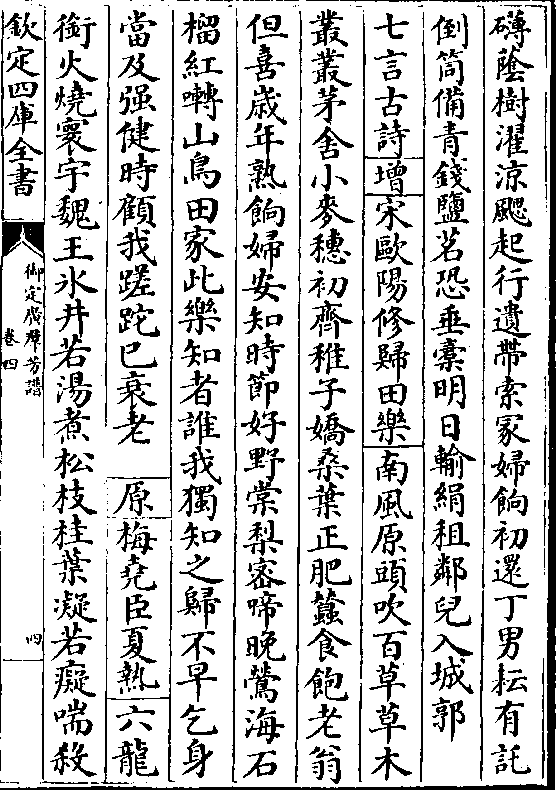 礴蔭樹濯涼颸起行遺帶索冢婦餉初還丁男耘有託
倒筒備青錢鹽茗恐垂橐明日輸絹租鄰兒入城郭
七言古詩增宋歐陽修歸田樂南風原頭吹百草草木
叢叢茅舍小麥穗初齊稚子嬌桑葉正肥蠶食飽老翁
但喜歲年熟餉婦安知時節好野棠梨密啼晚鶯海石
榴紅囀山鳥田家此樂知者誰我獨知之歸不早乞身
當及强健時顧我蹉跎已衰老原梅堯臣夏熱六龍
銜火燒寰宇魏王氷井若湯煮松枝桂葉凝若癡喘殺
欽定四庫全書
御定廣羣芳譜
卷四
四